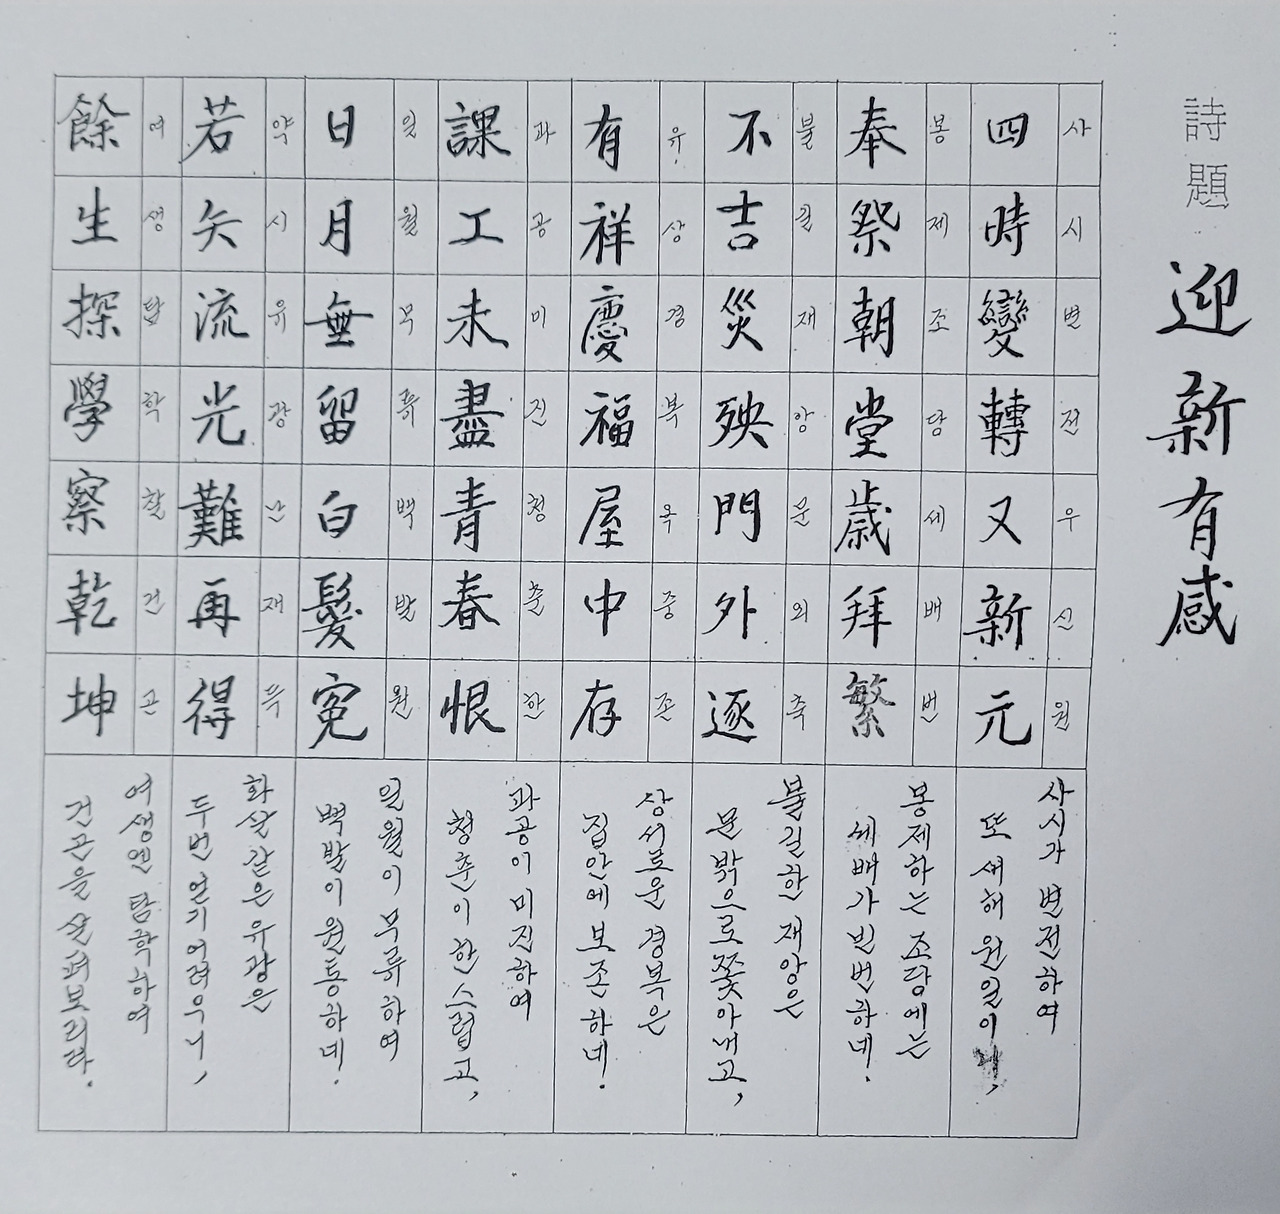 詩題 迎新有感
四時變轉又新元
사시변전우신원
사시가 변전하여
또 새해 원일이니,
奉祭朝堂歲拜繁
봉제조당세배번
봉제하는 조당에는
세배가 빈번하네.
不吉災殃門外逐
불길재앙문외축
불길한 재앙은
문밖으로 쫓아내고,
有祥慶福屋中存
유상경복옥중존
상서로운 경복은
집안에 보존하네.
課工未盡青春恨
과공미진청춘한
과공이 미진하여
청춘이 한스럽고,
日月無留白髮冤
일월무류백발원
일월이 무류하여
백발이 원통하네.
若矢流光難再得
약시유광난재득
화살같은 유광은
두번 얻기 어려우니,
餘生探學察乾坤
여생탐학찰건곤
여생엔 탐학하여
건곤을 살펴보리라.